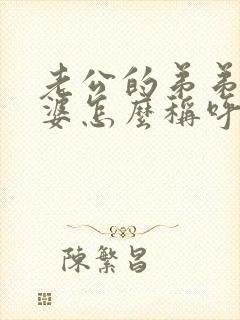 老公的弟弟
婆怎麼稱呼
陳繁昌